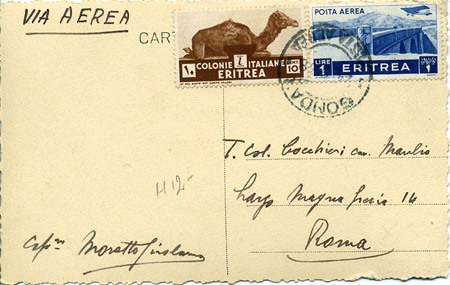 VIA AEREA
CART
10 COLONIE ITALIANE 10
ERITREA
POSTA AEREA
LIRE 1 ERITREA
GONDAR
T. Col. Cocchieri cav. Manlio
Largo Magna Grecia 14
Roma
H 12.-
Cap.no Moretto Girolamo